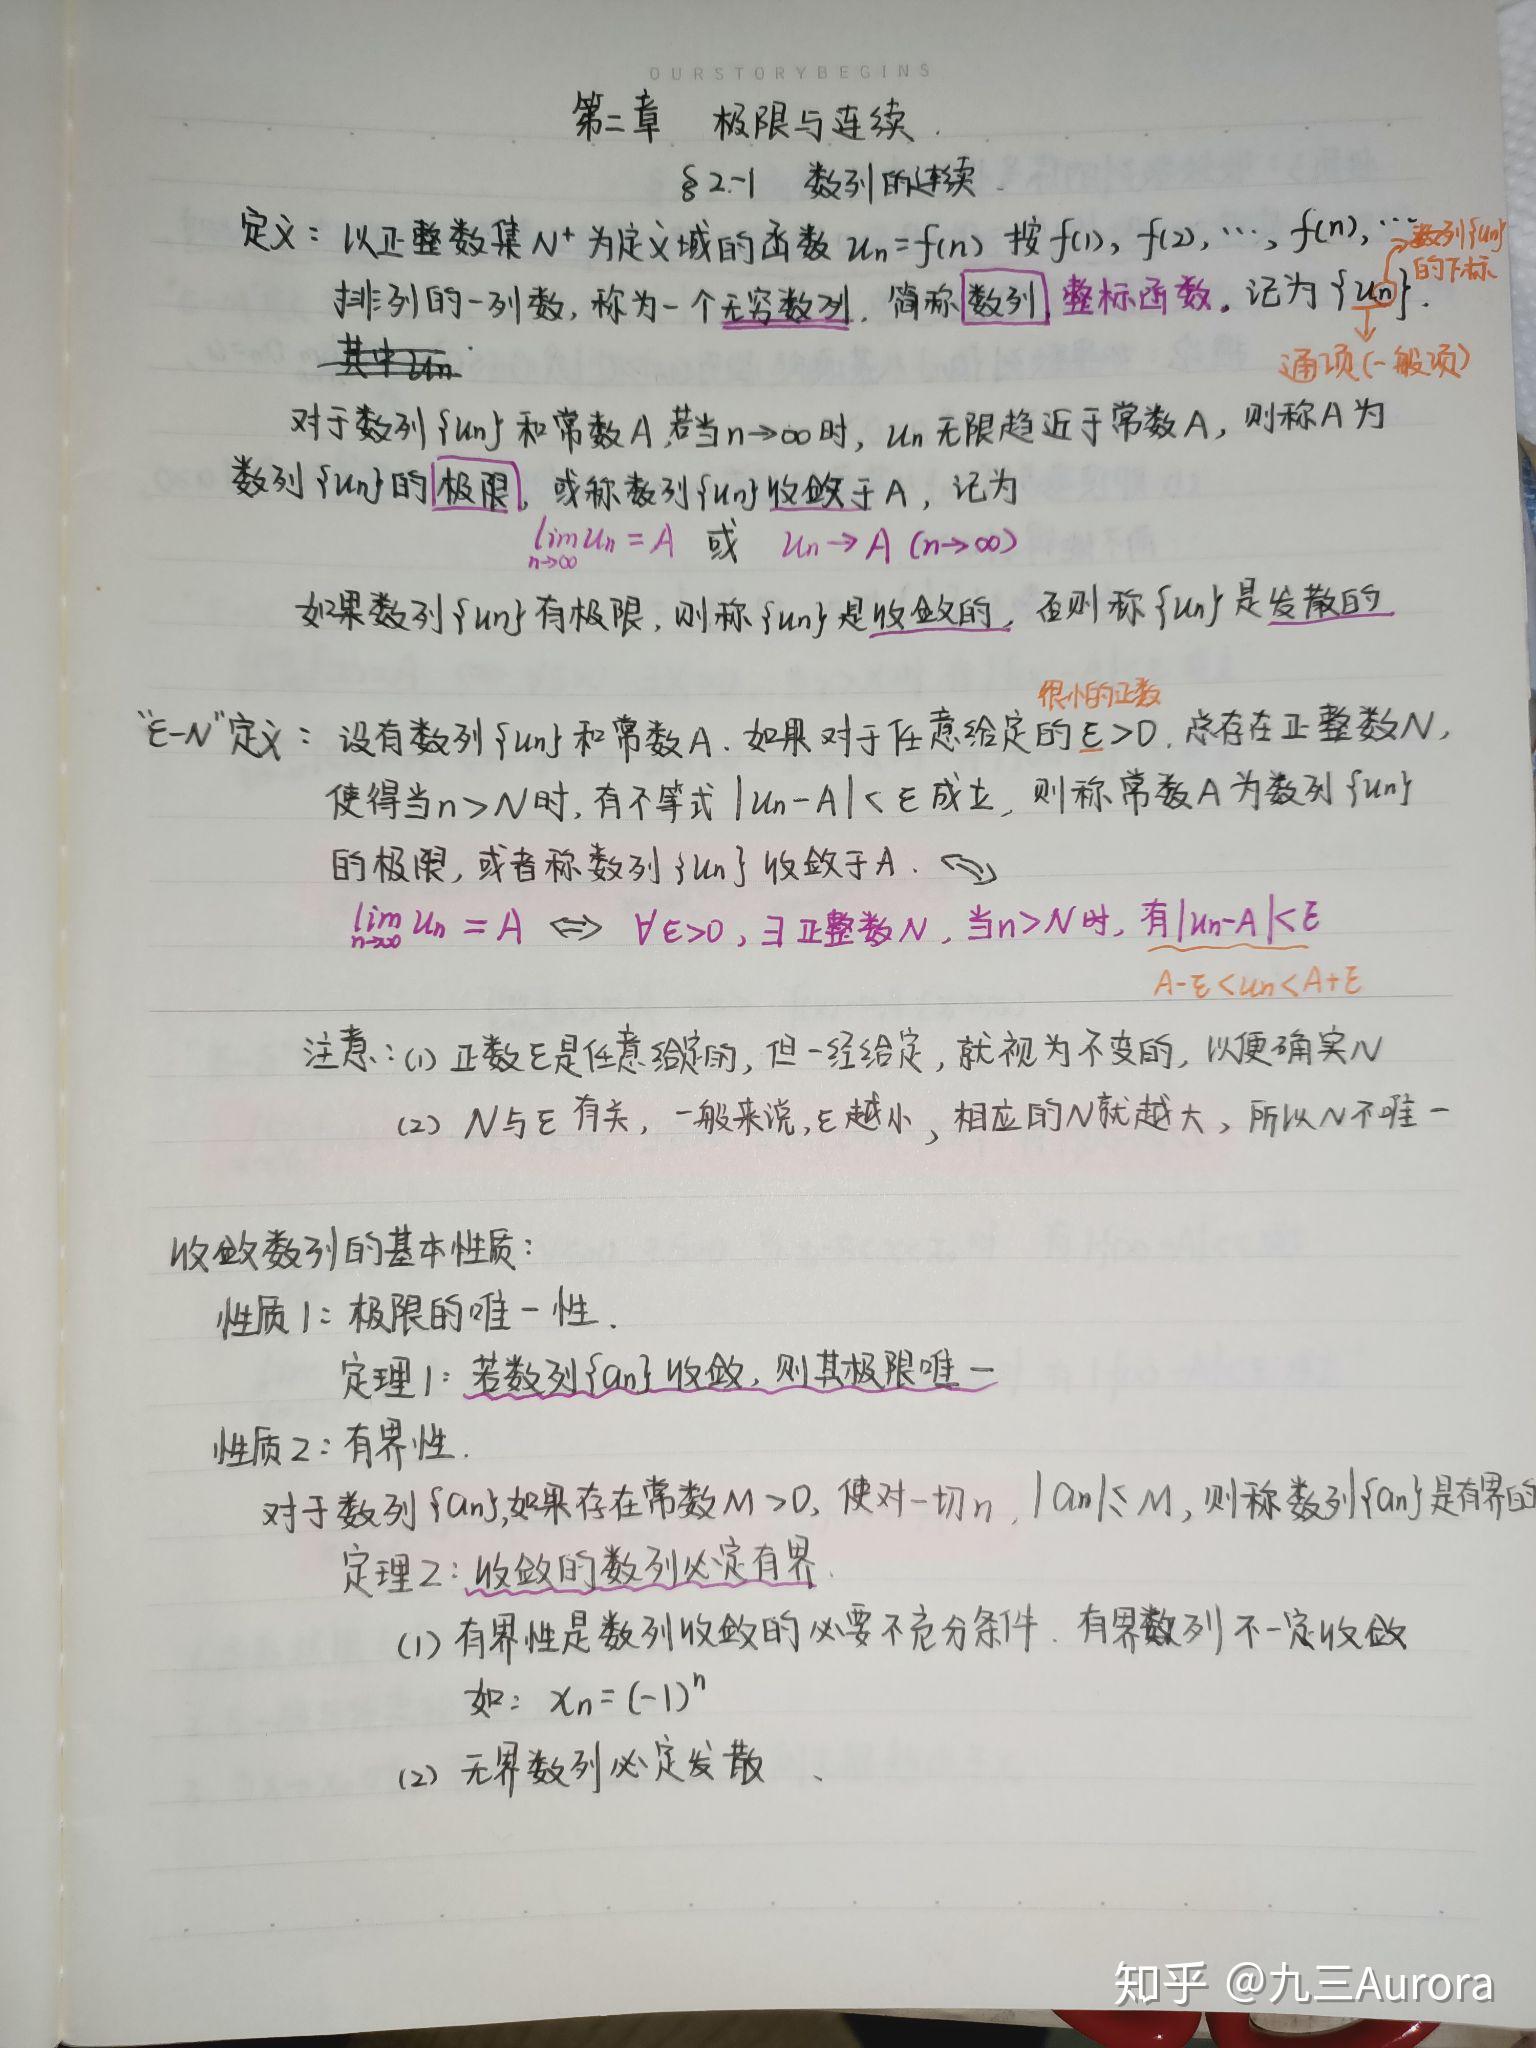 OURSTORYBEGINS
第二章 极限与连续.
§2-1 数列的连续.
定义：以正整数集N⁺为定义域的函数 un=f(n) 按f(1), f(2), …, f(n), …
数列{un}
的下标
排列的一列数，称为一个无穷数列. 简称数列 整标函数。记为{un}.
其中un
通项(一般项)
对于数列{un}和常数A,若当n→∞时, un无限趋近于常数A, 则称A为
数列{un}的极限, 或称数列{un}收敛于A, 记为
lim n→∞ un=A 或 un→A (n→∞)
如果数列{un}有极限, 则称{un}是收敛的, 否则称{un}是发散的
很小的正数
“ε-N”定义：设有数列{un}和常数A. 如果对于任意给定的ε>0, 总存在正整数N,
使得当n>N时, 有不等式|un-A|<ε成立, 则称常数A为数列{un}
的极限, 或者称数列{un}收敛于A. ⇔
lim n→∞ un=A ⇔ ∀ε>0, ∃正整数N, 当n>N时, 有|un-A|<ε
A-ε<un<A+ε
注意：(1) 正数ε是任意给定的, 但一经给定, 就视为不变的, 以便确实N
(2) N与ε有关, 一般来说, ε越小, 相应的N就越大, 所以N不唯一
收敛数列的基本性质：
性质1：极限的唯一性.
定理1：若数列{an}收敛, 则其极限唯一
性质2：有界性.
对于数列{an},如果存在常数M>0, 使对一切n, |an|≤M, 则称数列{an}是有界的
定理2：收敛的数列必定有界.
(1) 有界性是数列收敛的必要不充分条件. 有界数列不一定收敛
如：xn=(-1)ⁿ
(2) 无界数列必定发散、
知乎 @九三Aurora